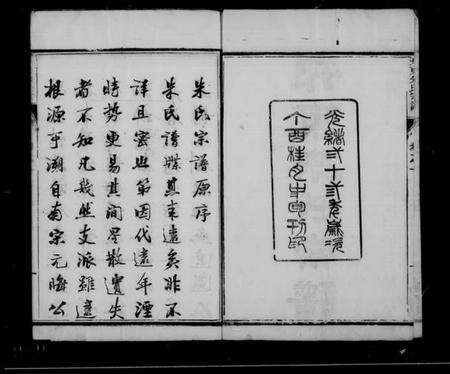 光緒弍十弎年歲次
丁酉桂月中旬刊印
朱氏宗譜原序
朱氏譜牒其来遠矣非不
詳且密與第因代遠年湮
時勢更易其間星散遺失
者不知凡幾然支派雖遠
根源乎溯自南宋元晦公